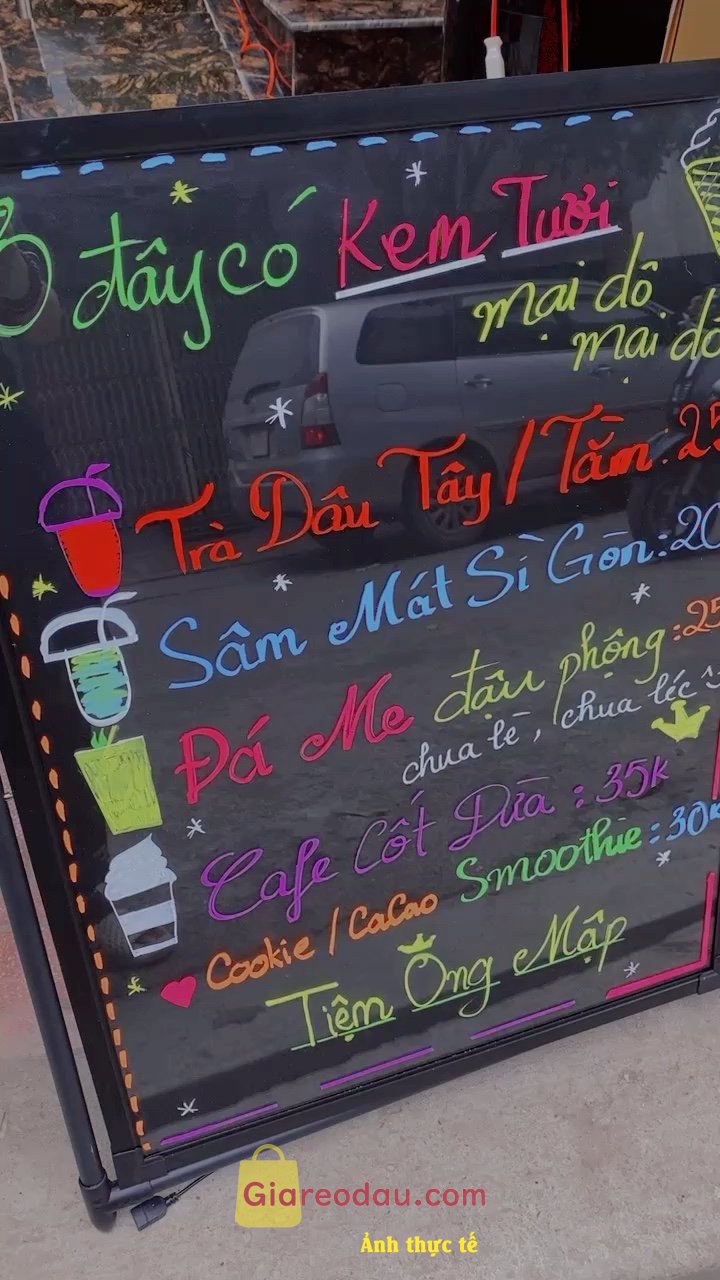 Ở đây có Kem Tươi
mại dô
mại dô
Trà Dâu Tây / Tằm: 25
Sâm Mát Sì Gòn: 20
Đá Me đậu phộng: 25
chua lè, chua léc
Cafe Cốt Dừa: 35k
Cookie / CaCao Smoothie: 30k
Tiệm Ông Mập
Giareodau.com
Ảnh thực tế